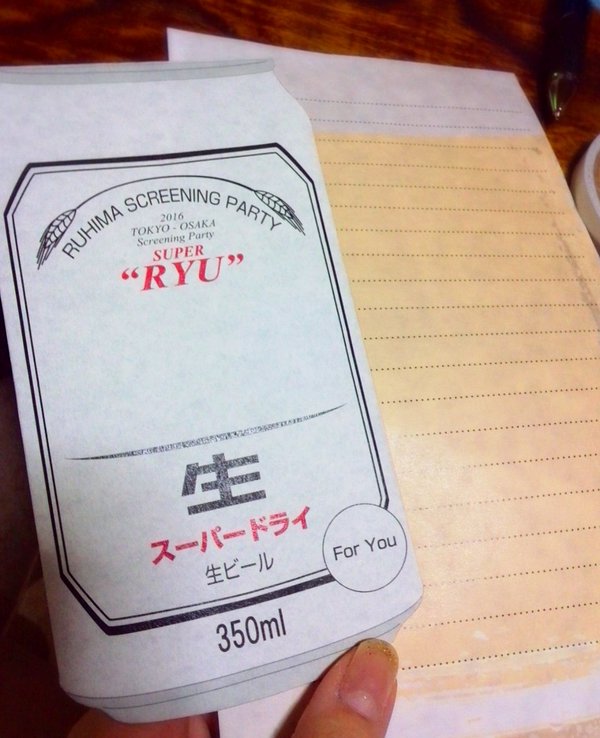 RUHIMA SCREENING PARTY
2016
TOKYO - OSAKA
Screening Party
SUPER
“RYU”
生
スーパードライ
生ビール
For You
350ml